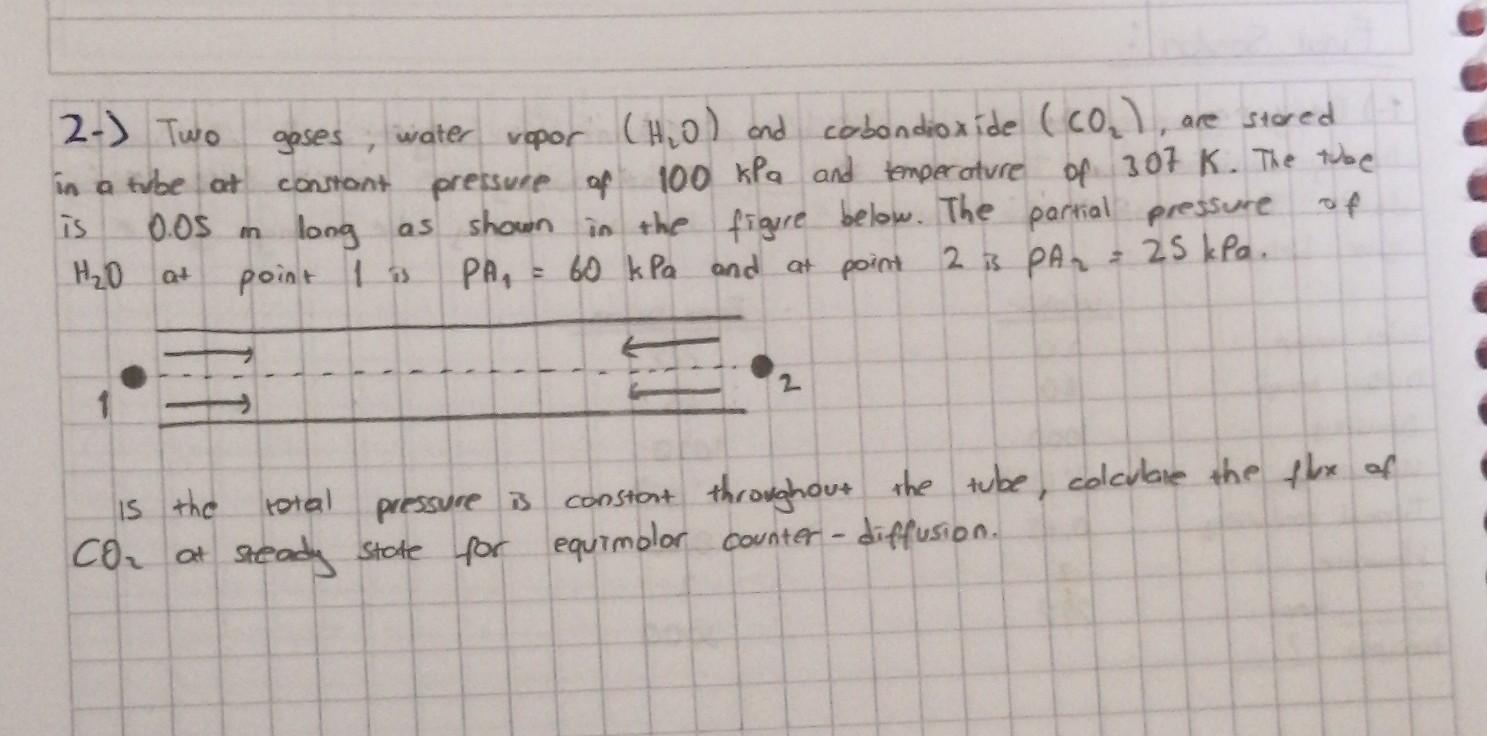 2-) Two gases, water vapor (H₂O) and cabondioxide (CO₂), are stored
in a tube at constant pressure of 100 kPa and temperature of 307 K. The tube
is 0.05 m long as shown in the figure below. The partial pressure of
H₂O at point 1 is PA₁ = 60 kPa and at point 2 is PA₂ = 25 kPa.
1 2
is the total pressure is constant throughout the tube, calculate the flux of
CO₂ at steady state for equimolar counter-diffusion.